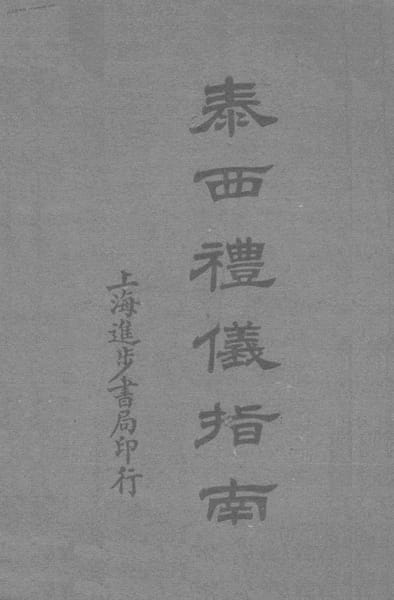 泰西禮儀指南
上海進步書局印行